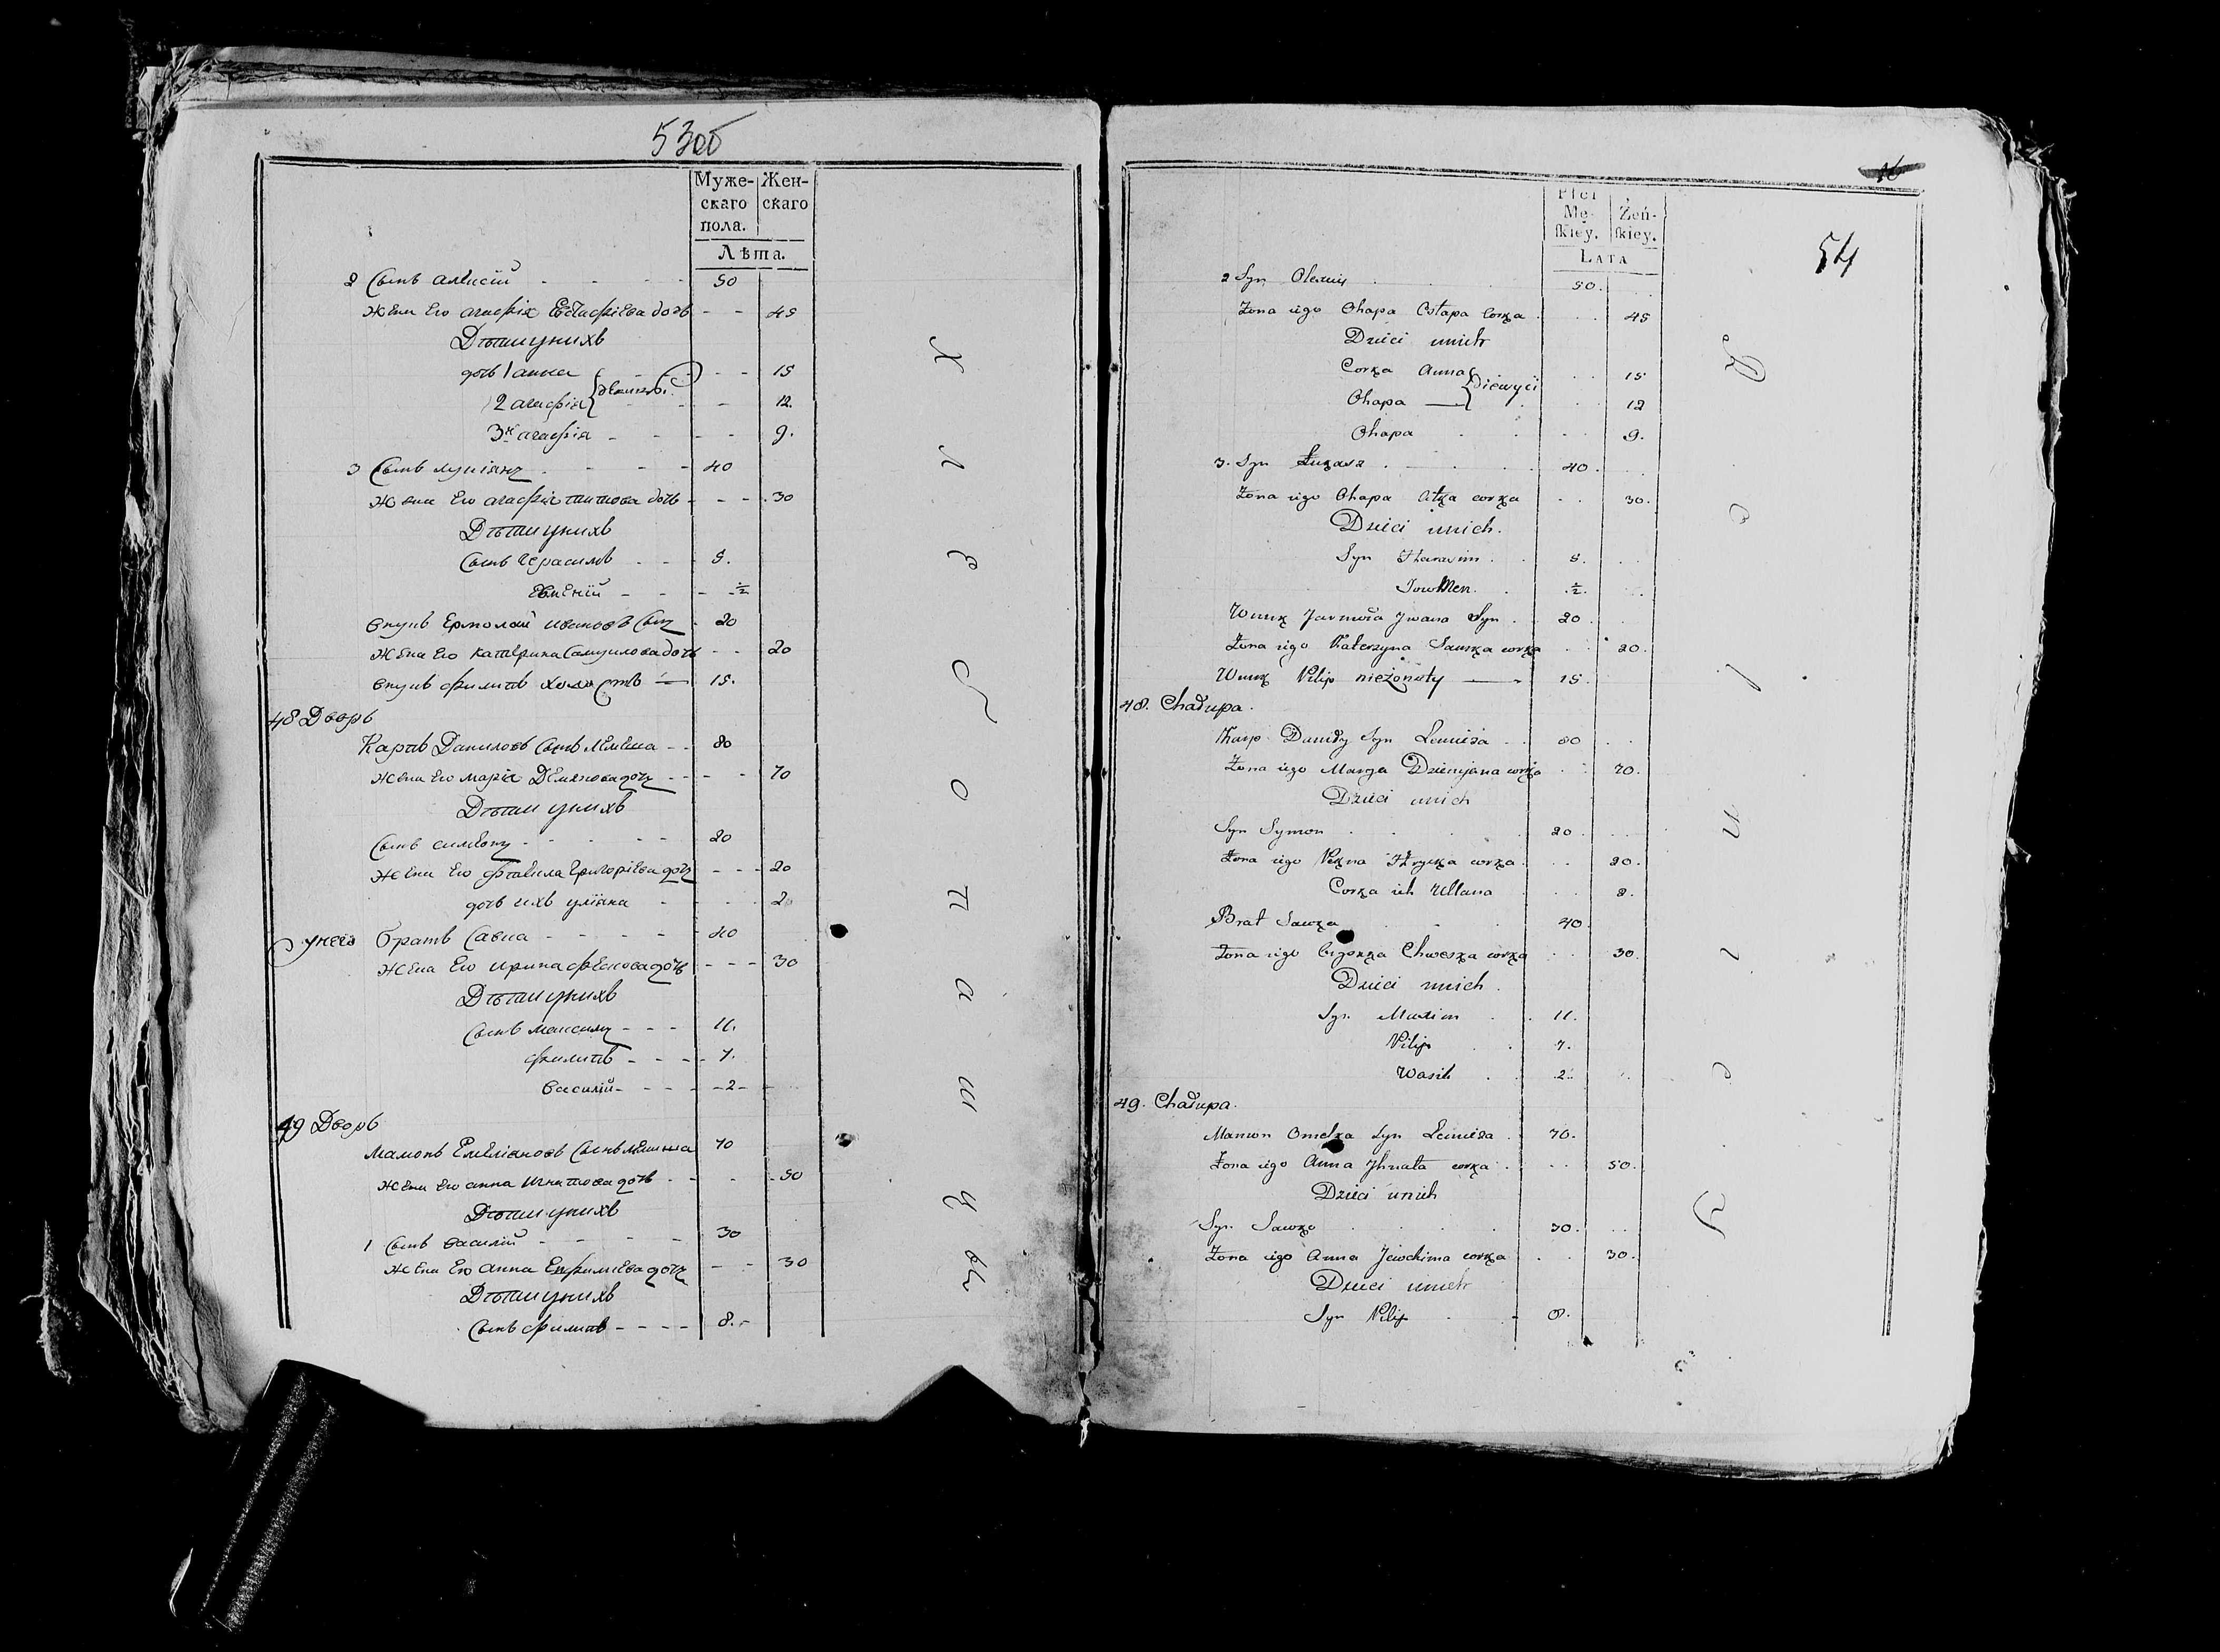 53об
Муже- Жен-
скаго скаго
пола.
Лѣта.
2 Сынъ алексій 50
Жена Его агафія Евстафіева дочь 45
Дѣти у нихъ
дочь 1 анна 15
2 агафія 12.
3я агафія 9.
3 Сынъ лукіянъ 40
Жена Его агафія титова дочь 30
Дѣти у нихъ
Сынъ Герасимъ 5.
Евмений ½
внукъ Ермолай ивановъ Сынъ 20
Жена Его катерина Самуилова дочь 20
внукъ филипъ холостъ 15.
48 Дворъ
Карпъ Даниловъ Сынъ 80
Жена Его марія Демянова дочь 70
Дѣти у нихъ
Сынъ симеонъ 20
Жена Его Григоріева дочь 20
дочь ихъ уліяна 2
у него братъ Савка 40
Жена Его ирина фескова дочь 30
Дѣти у нихъ
Сынъ максимъ 11.
филипъ 7.
василій 2
49 Дворъ
мамонъ Емеліановъ Сынъ 70
Жена Его анна игнатова дочь 50
Дѣти у нихъ
1 Сынъ василій 30
Жена Его анна дочь 30
Дѣти у нихъ
Сынъ филипъ 8.
Хлѣбопашцы
16
54
Płci
Mę- Żeń-
skiey. skiey.
LATA
2 Syn Olexiiy 50.
Żona iigo Ohapa Ostapa Corka 45
Dzieci unich
Corka Anna 15
Ohapa 12
Dziewyci
Ohapa 9.
3. Syn Łukasz 40.
Żona iigo Ohapa corka 30.
Dzieci unich.
Syn Harasim 5.
½.
Wnuk Jarmoła Jwana Syn 20
Żona iigo Katerzyna Sawka corka 20.
Wnuk Pilip nieżonoty 15
48. Chałupa.
Karp Daniły Syn Lemisza 80
Żona iigo Marya Dziemjana corka 70.
Dzieci unich
Syn Symon 20.
Żona iigo Hryćka corka 20.
Corka ich Ullana 2.
Brat Sawka 40
Żona iigo Chweska corka 30.
Dzieci unich.
Syn Maxim 11.
Pilip 7.
Wasil 2.
49. Chałupa.
Mamon Omelka Syn Lemisza 70.
Żona iigo Anna Jhnata corka 50.
Dzieci unich
Syn Sawka 30.
Żona iigo Anna Jewchima corka 30.
Dzieci unich
Syn Pilip 8.
Rolnicy